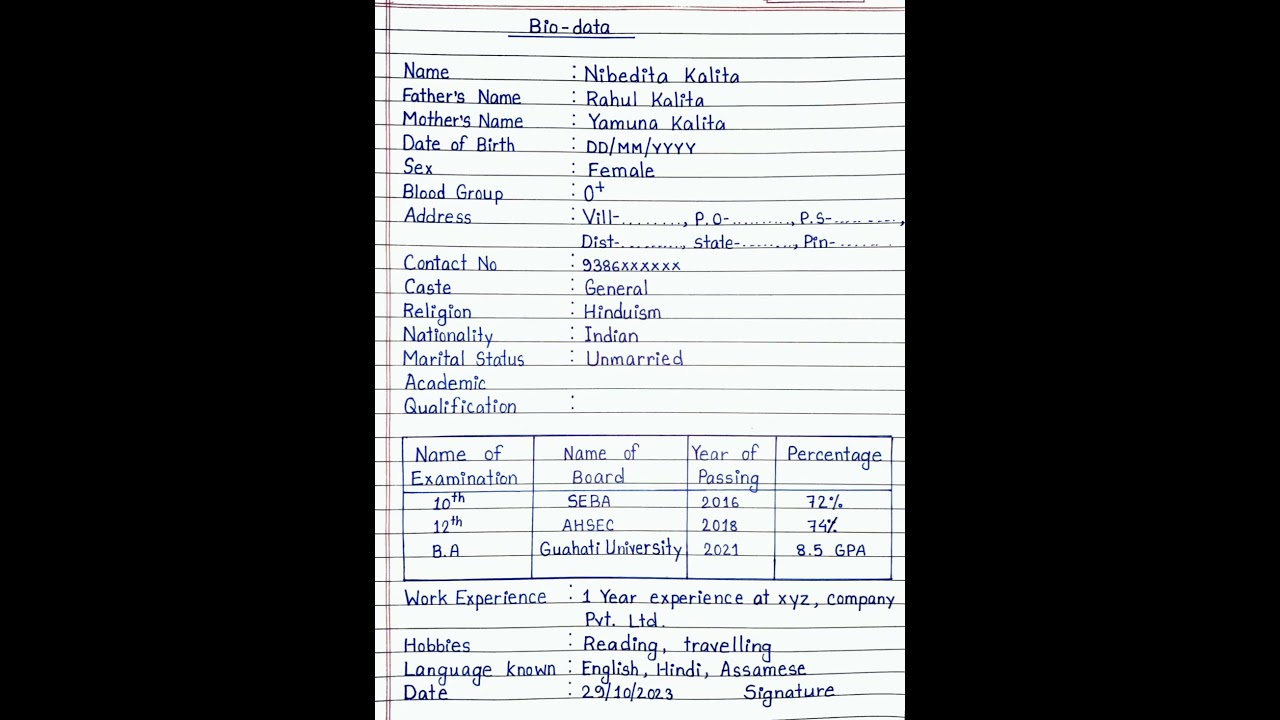 Bio-data
Name : Nibedita Kalita
Father's Name : Rahul Kalita
Mother's Name : Yamuna Kalita
Date of Birth : DD/MM/YYYY
Sex : Female
Blood Group : O+
Address : Vill-........, P.O-.........., P.S-..........,
Dist-.........., State-........, Pin-.......
Contact No : 9386xxxxxx
Caste : General
Religion : Hinduism
Nationality : Indian
Marital Status : Unmarried
Academic
Qualification :
Name of Name of Year of Percentage
Examination Board Passing
10th SEBA 2016 72%
12th AHSEC 2018 74%
B.A Guahati University 2021 8.5 GPA
Work Experience : 1 Year experience at xyz, company
Pvt. Ltd.
Hobbies : Reading, travelling
Language known : English, Hindi, Assamese
Date : 29/10/2023 Signature